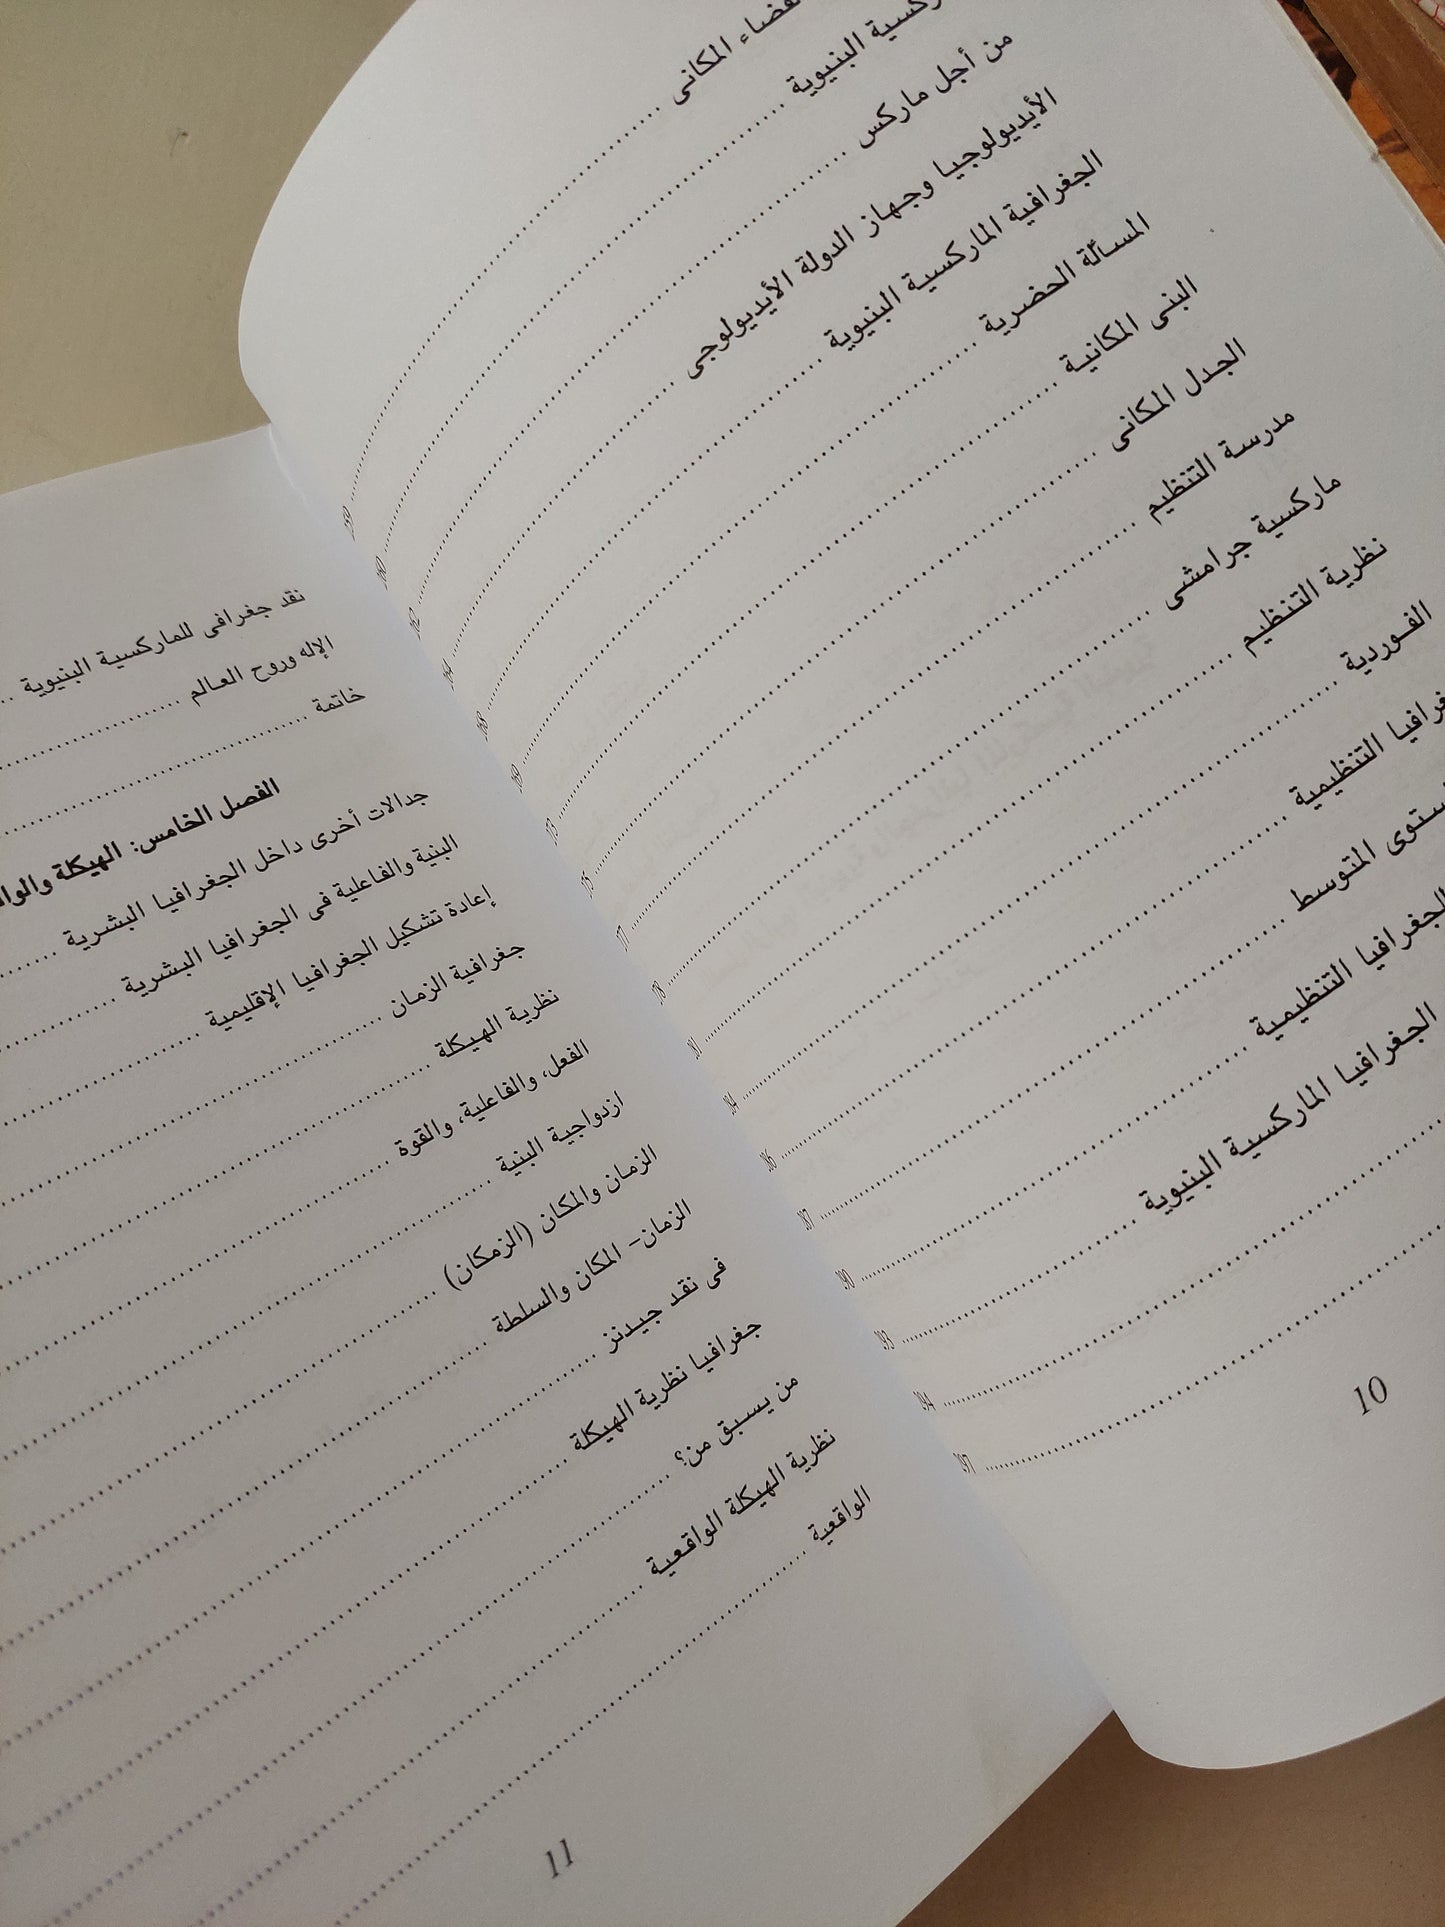 المكانى
البنيوية
من أجل ماركس
الأيديولوجيا وجهاز الدولة الأيديولوجى
الجغرافية الماركسية البنيوية
المسألة الحضرية
البنى المكانية
الجدل المكانى
مدرسة التنظيم
ماركسية جرامشى
نظرية التنظيم
الفوردية
التنظيمية
المتوسط
الجغرافيا التنظيمية
الجغرافيا الماركسية البنيوية
10
نقد جغرافى للماركسية البنيوية
الإله وروح العالم
خاتمة
الفصل الخامس: الهيكلة
جدالات أخرى داخل الجغرافيا البشرية
البنية والفاعلية فى الجغرافيا البشرية
إعادة تشكيل الجغرافيا الإقليمية
جغرافية الزمان
نظرية الهيكلة
الفعل، والفاعلية، والقوة
ازدواجية البنية
الزمان والمكان (الزمكان)
الزمان- المكان والسلطة
فى نقد جيدنز
جغرافيا نظرية الهيكلة
من يسبق من؟
نظرية الهيكلة الواقعية
الواقعية
11